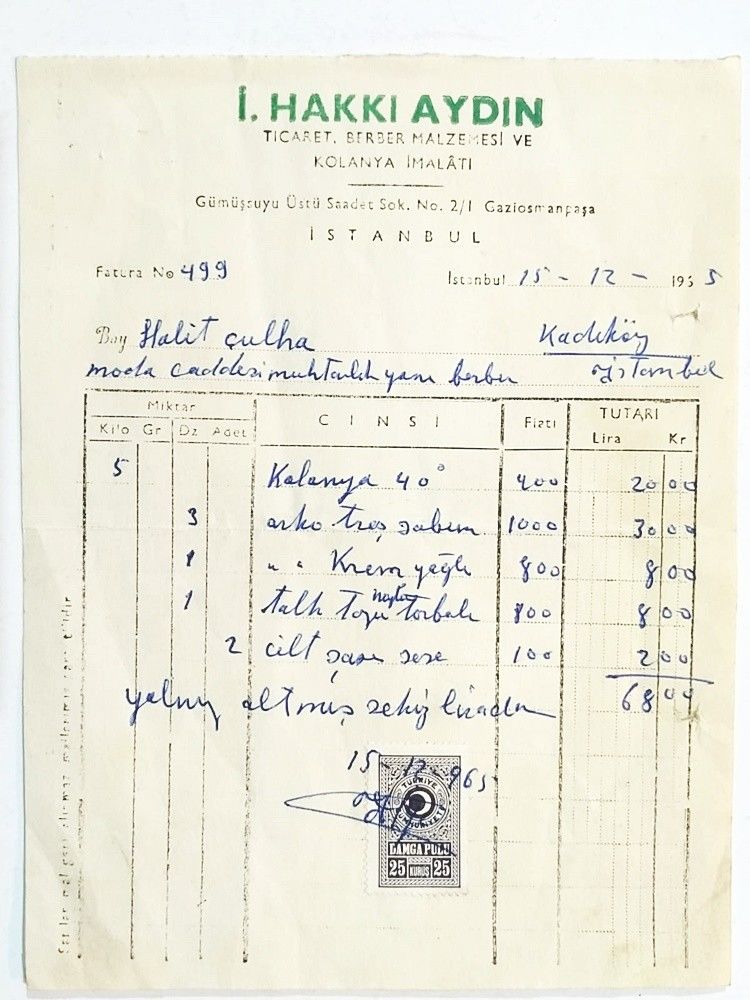 İ. HAKKI AYDIN
TİCARET, BERBER MALZEMESİ VE
KOLANYA İMALÂTI
Gümüşsuyu Üstü Saadet Sok. No. 2/1 Gaziosmanpaşa
İSTANBUL
Fatura No 499
İstanbul 15 - 12 - 1965
Bay Halit çulha Kadıköy
moda caddesi muhtarlık yanı berber istanbul
Miktar CİNSİ Fiatı TUTARI
Kilo Gr Dz Adet Lira Kr
5 Kolanya 40° 400 20 00
3 arko traş sabunu 1000 30 00
1 " " Krem yağlı 800 8 00
1 talk tozu naylon torbalı 800 8 00
2 cilt 100 2 00
yalnız altmış sekiz liradır 68 00
15-12-965
TÜRKİYE CUMHURİYETİ
DAMGA PULU
25 KURUŞ 25